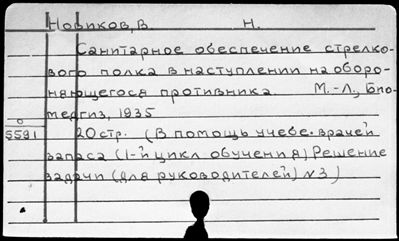 Новиков, В. Н.
Санитарное обеспечение стрелко-
вого полка в наступлении на оборо-
няющегося противника М.-Л., Био-
медгиз, 1935
О
5591 20 стр. (В помощь учебе врачей
запаса (1-й цикл обучения) Решение
задачи (для руководителей) №3)